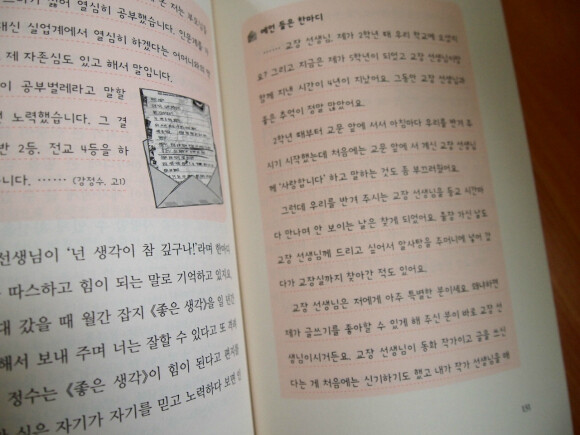 싫어 열심히 공부했습니다. 인문계를
대신 실업계에서 열심히 하겠다는 어머니와의
제 자존심도 있고 해서 말입니다.
이 공부벌레라고 말할
노력했습니다. 그 결
반 2등, 전교 4등을 하
니다. …… (강정수. 고1)
선생님이 '넌 생각이 참 깊구나!'라며 한마디
따스하고 힘이 되는 말로 기억하고 있지요.
대 갔을 때 월간 잡지 《좋은 생각》을 일 년간
해서 보내 주며 너는 잘할 수 있다고 또 격려
정수는 《좋은 생각》이 힘이 된다고 편지를
싶은 자기가 자기를 믿고 노력하다 보면
예전 들은 한마디
…… 교장 선생님. 제가 2학년 때 우리 학교에 오셨지
요? 그리고 지금은 제가 5학년이 되었고 교장 선생님이랑
함께 지낸 시간이 4년이 지났어요. 그동안 교장 선생님과
좋은 추억이 정말 많았어요.
2학년 때부터 교문 앞에 서서 아침마다 우리를 반겨 주
시기 시작했는데 처음에는 교문 앞에 서 계신 교장 선생님
께 '사랑합니다' 하고 말하는 것도 좀 부끄러웠어요.
그런데 우리를 반겨 주시는 교장 선생님을 등교 시간마
다 만나며 안 보이는 날은 찾게 되었어요. 출장 가신 날도
교장 선생님께 드리고 싶어서 알사탕을 주머니에 넣어 갔
다가 교장실까지 찾아간 적도 있어요.
교장 선생님은 저에게 아주 특별한 분이세요. 왜냐하면
제가 글쓰기를 좋아할 수 있게 해 주신 분이 바로 교장 선
생님이시거든요. 교장 선생님이 동화 작가이고 글을 쓰신
다는 게 처음에는 신기하기도 했고 내가 작가 선생님을 매